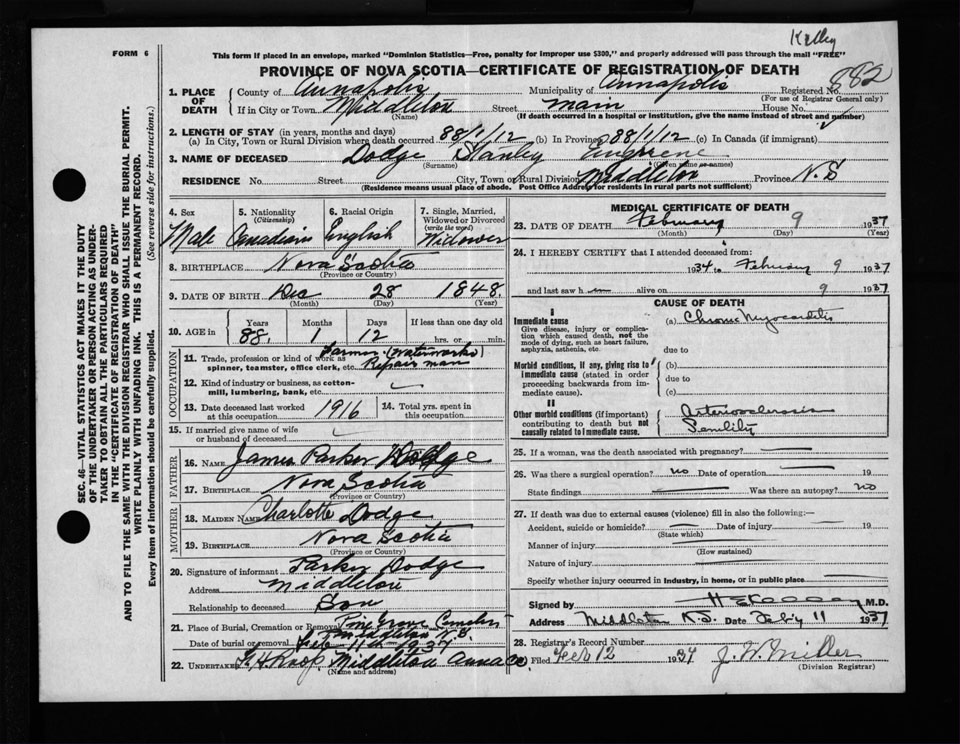 Kelley
FORM 6
This form if placed in an envelope, marked "Dominion Statistics—Free, penalty for improper use $300," and properly addressed will pass through the mail "FREE"
PROVINCE OF NOVA SCOTIA—CERTIFICATE OF REGISTRATION OF DEATH
1. PLACE OF DEATH County of Annapolis Municipality of Annapolis Registered No. 882
(For use of Registrar General only)
If in City or Town Middleton Street main House No.
(Name) (If death occurred in a hospital or institution, give the name instead of street and number)
2. LENGTH OF STAY (in years, months and days)
(a) In City, Town or Rural Division where death occurred 88/1/12 (b) In Province 88/1/12 (c) In Canada (if immigrant)
3. NAME OF DECEASED Dodge Stanley
(Surname) (Given name or names)
RESIDENCE No. Street City, Town or Rural Division Middleton Province N.S
(Residence means usual place of abode. Post Office Address for residents in rural parts not sufficient)
4. Sex Male
5. Nationality (Citizenship) Canadian
6. Racial Origin English
7. Single, Married, Widowed or Divorced (write the word) Widower
8. BIRTHPLACE Nova Scotia
(Province or Country)
9. DATE OF BIRTH Dec 28 1848.
(Month) (Day) (Year)
10. AGE in Years Months Days If less than one day
88. 1 12 hrs. or min.
OCCUPATION
11. Trade, profession or kind of work as Farmer (waterworks)
spinner, teamster, office clerk, etc. Repair man
12. Kind of industry or business, as cotton-
mill, lumbering, bank, etc.
13. Date deceased last worked at this occupation 1916
14. Total yrs. spent in this occupation
15. If married give name of wife
or husband of deceased
FATHER
16. NAME James Parker Dodge
17. BIRTHPLACE Nova Scotia
(Province or Country)
MOTHER
18. MAIDEN NAME Charlotte Dodge
19. BIRTHPLACE Nova Scotia
(Province or Country)
20. Signature of informant Parker Dodge
Address Middleton
Relationship to deceased Son
21. Place of Burial, Cremation or Removal Pine Grove Cemetery
Middleton N.S.
Date of burial or removal Feb 11th 1937
22. UNDERTAKER Roop Middleton Anna Co.
(Name and address)
MEDICAL CERTIFICATE OF DEATH
23. DATE OF DEATH February 9 1937
(Month) (Day) (Year)
24. I HEREBY CERTIFY that I attended deceased from:
1934 to February 9 1937
and last saw h m alive on 9 1937
CAUSE OF DEATH
I
Immediate cause
Give disease, injury or complication which caused death, not the mode of dying, such as heart failure, asphyxia, asthenia, etc.
(a) Chronic Myocarditis
due to
Morbid conditions, if any, giving rise to immediate cause (stated in order proceeding backwards from immediate cause)
(b)
due to
(c)
II
Other morbid conditions (if important) contributing to death but not causally related to immediate cause.
Arteriosclerosis
Senility
25. If a woman, was the death associated with pregnancy?
26. Was there a surgical operation? no Date of operation 19
State findings Was there an autopsy? no
27. If death was due to external causes (violence) fill in also the following:—
Accident, suicide or homicide? Date of injury 19
(State which)
Manner of injury
(How sustained)
Nature of injury
Specify whether injury occurred in industry, in home, or in public place
Signed by M.D.
Address Middleton N.S. Date Feby 11 1937
28. Registrar's Record Number
Filed Feb 12 1937 J. W. Miller
(Division Registrar)
SEC. 46—VITAL STATISTICS ACT MAKES IT THE DUTY
OF THE UNDERTAKER OR PERSON ACTING AS UNDER-
TAKER TO OBTAIN ALL THE PARTICULARS REQUIRED
IN THE "CERTIFICATE OF REGISTRATION OF DEATH"
AND TO FILE THE SAME WITH THE DIVISION REGISTRAR WHO SHALL ISSUE THE BURIAL PERMIT.
WRITE PLAINLY WITH UNFADING INK. THIS IS A PERMANENT RECORD.
Every item of information should be carefully supplied. (See reverse side for instructions.)